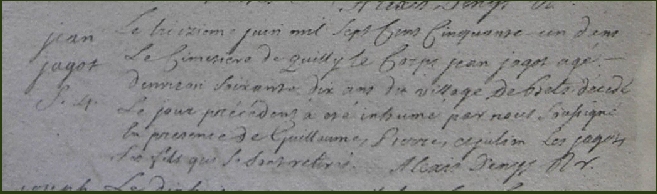 Alexis Denys
jean Le treizieme juin mil Sept Cens Cinquante un dans
jagot Le Cimetiere de quilly le Corps jean jagot agé
denviron Soixante dix ans du village de decedé
Le jour précédent a été inhumé par nous Soussigné
En presence de Guillaume, Pierre, Les jagots
Ses fils qui Se sont retiré. Alexis Denys